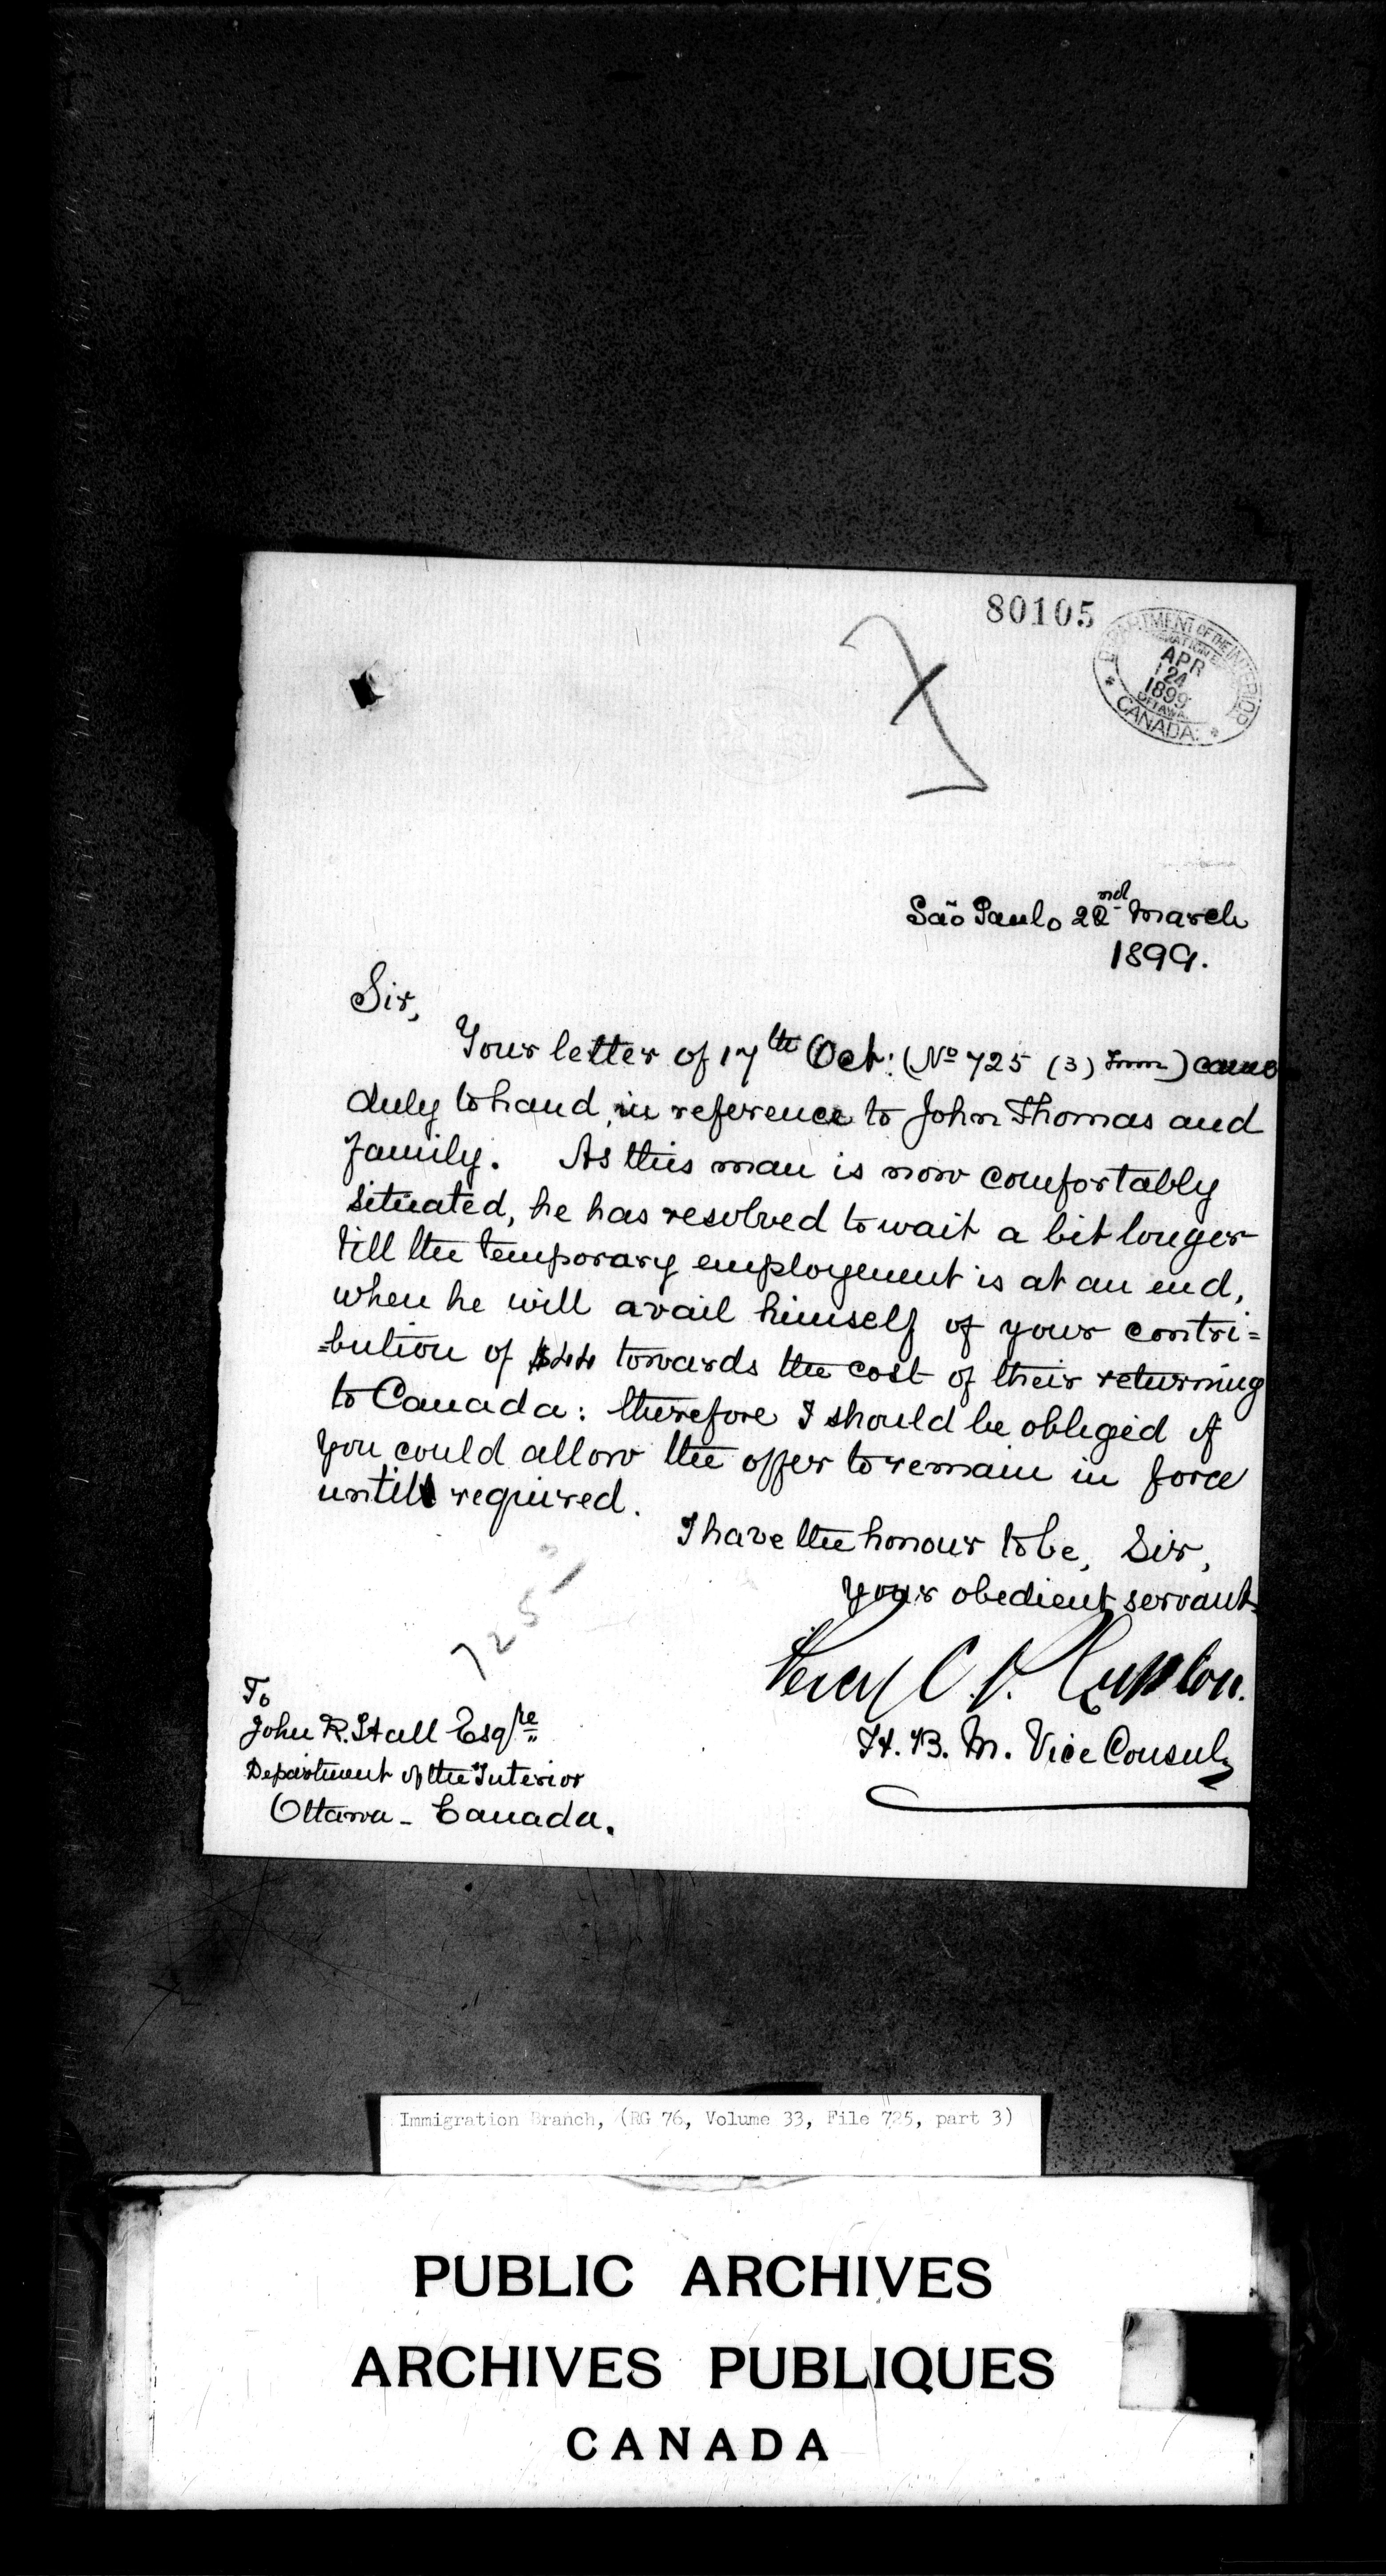 80105
DEPARTMENT OF THE INTERIOR
APR
24
1899
OTTAWA
* CANADA. *
São Paulo 22nd March
1899.
Sir,
Your letter of 17th Oct: (No 725 (3) Imm) came
duly to hand, in reference to John Thomas and
family. As this man is now comfortably
situated, he has resolved to wait a bit longer
till the temporary employement is at an end,
when he will avail himself of your contri=
=bution of $44 towards the cost of their returning
to Canada: therefore I should be obliged if
you could allow the offer to remain in force
until required.
I have the honour to be, Sir,
your obedient servant
Percy C. P. Lupton.
H. B. M. Vice Consul
725
To
John R. Hall Esqre
Department of the Interior
Ottawa - Canada.
Immigration Branch, (RG 76, Volume 33, File 725, part 3)
PUBLIC ARCHIVES
ARCHIVES PUBLIQUES
CANADA